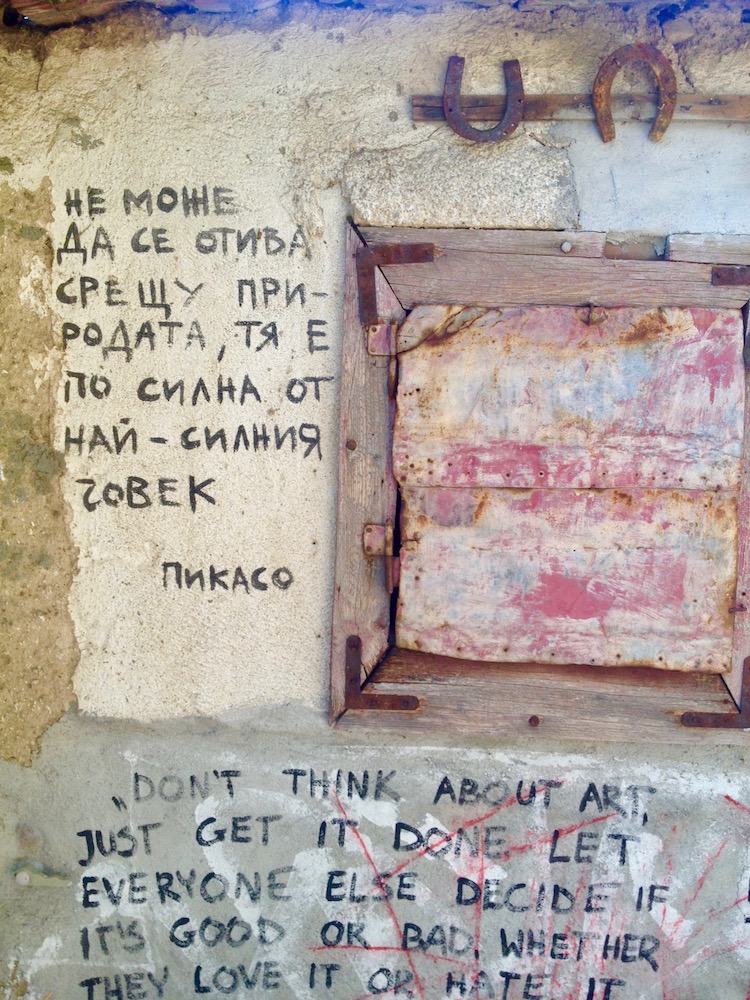 НЕ МОЖЕ
ДА СЕ ОТИВА
СРЕЩУ ПРИ-
РОДАТА, ТЯ Е
ПО СИЛНА ОТ
НАЙ-СИЛНИЯ
ЧОВЕК
ПИКАСО
„DON'T THINK ABOUT ART,
JUST GET IT DONE LET
EVERYONE ELSE DECIDE IF
IT'S GOOD OR BAD, WHETHER
THEY LOVE IT OR HATE IT